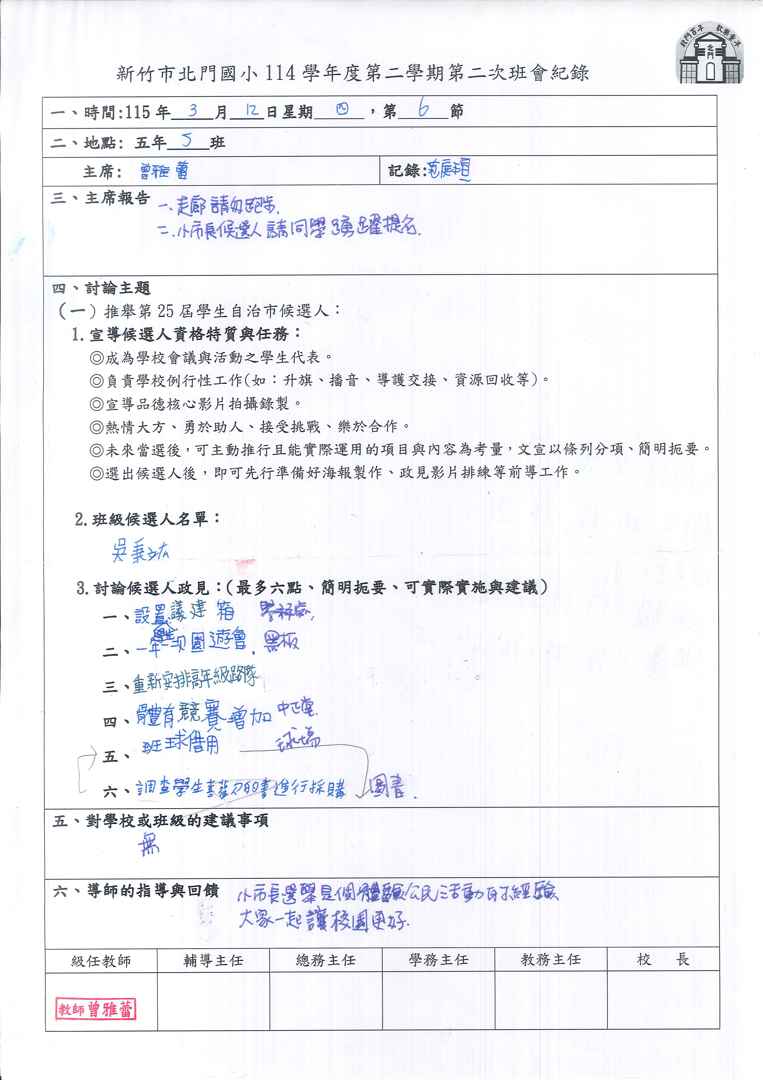 新竹市北門國小114學年度第二學期第二次班會紀錄
一、時間:115年 3 月 12 日星期 四 ，第 6 節
二、地點: 五年 5 班
主席: 曾雅蕾 記錄:
三、主席報告 一、走廊請勿跑步.
二、小市長候選人請同學踴躍提名.
四、討論主題
（一）推舉第25屆學生自治市候選人：
1.宣導候選人資格特質與任務：
◎成為學校會議與活動之學生代表。
◎負責學校例行性工作(如：升旗、播音、導護交接、資源回收等)。
◎宣導品德核心影片拍攝錄製。
◎熱情大方、勇於助人、接受挑戰、樂於合作。
◎未來當選後，可主動推行且能實際運用的項目與內容為考量，文宣以條列分項、簡明扼要。
◎選出候選人後，即可先行準備好海報製作、政見影片排練等前導工作。
2.班級候選人名單：
吳秉
3.討論候選人政見：(最多六點、簡明扼要、可實際實施與建議)
一、設置議建箱 學務處,
二、一年一次園遊會. 黑板
三、重新安排高年級路隊
四、體育競賽增加 中正堂
五、班球借用 球場
六、調查學生喜歡的書進行採購 圖書.
五、對學校或班級的建議事項
無
六、導師的指導與回饋 小市長選舉是個體驗公民活動的好經驗
大家一起讓校園更好.
級任教師 輔導主任 總務主任 學務主任 教務主任 校 長
教師曾雅蕾